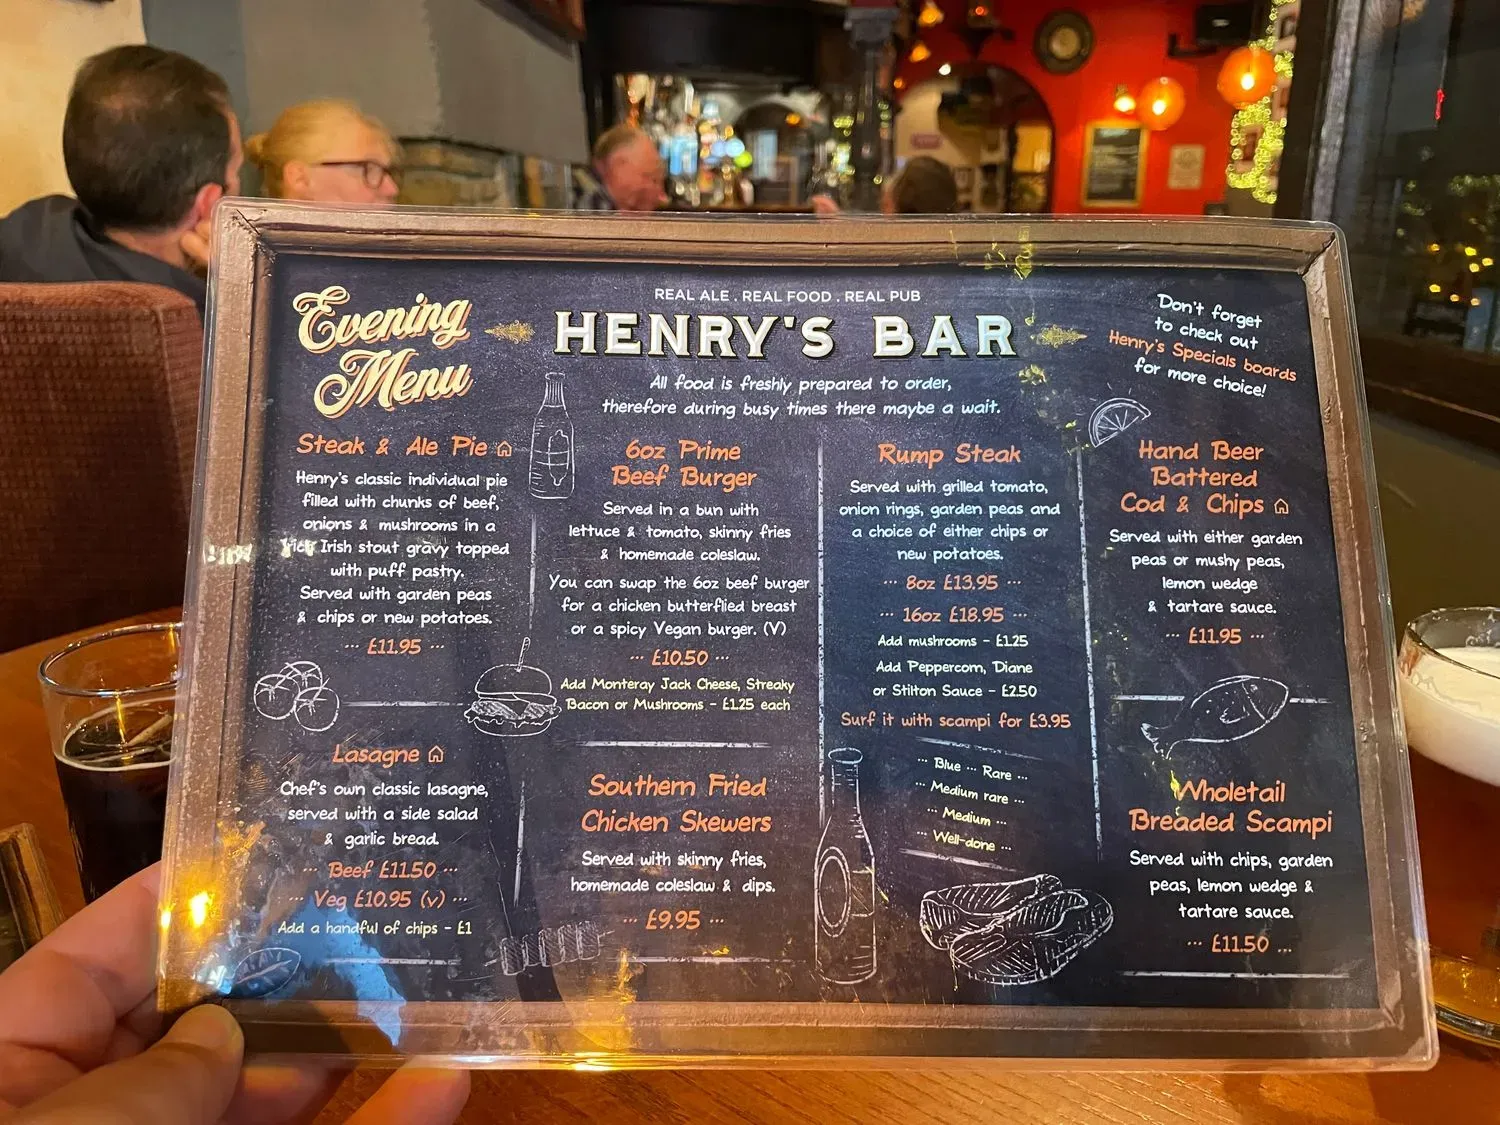 Evening
Menu
REAL ALE . REAL FOOD . REAL PUB
HENRY'S BAR
All food is freshly prepared to order,
therefore during busy times there maybe a wait.
Don't forget
to check out
Henry's Specials boards
for more choice!
Steak & Ale Pie
Henry's classic individual pie
filled with chunks of beef,
onions & mushrooms in a
Irish stout gravy topped
with puff pastry.
Served with garden peas
& chips or new potatoes.
... £11.95 ...
Lasagne
Chef's own classic lasagne,
served with a side salad
& garlic bread.
... Beef £11.50 ...
... Veg £10.95 (v) ...
Add a handful of chips - £1
6oz Prime
Beef Burger
Served in a bun with
lettuce & tomato, skinny fries
& homemade coleslaw.
You can swap the 6oz beef burger
for a chicken butterflied breast
or a spicy Vegan burger. (V)
... £10.50 ...
Add Monteray Jack Cheese, Streaky
Bacon or Mushrooms - £1.25 each
Southern Fried
Chicken Skewers
Served with skinny fries,
homemade coleslaw & dips.
... £9.95 ...
Rump Steak
Served with grilled tomato,
onion rings, garden peas and
a choice of either chips or
new potatoes.
... 8oz £13.95 ...
... 16oz £18.95 ...
Add mushrooms - £1.25
Add Peppercorn, Diane
or Stilton Sauce - £2.50
Surf it with scampi for £3.95
... Blue ... Rare ...
... Medium rare ...
... Medium ...
... Well-done ...
Hand Beer
Battered
Cod & Chips
Served with either garden
peas or mushy peas,
lemon wedge
& tartare sauce.
... £11.95 ...
Wholetail
Breaded Scampi
Served with chips, garden
peas, lemon wedge &
tartare sauce.
... £11.50 ...